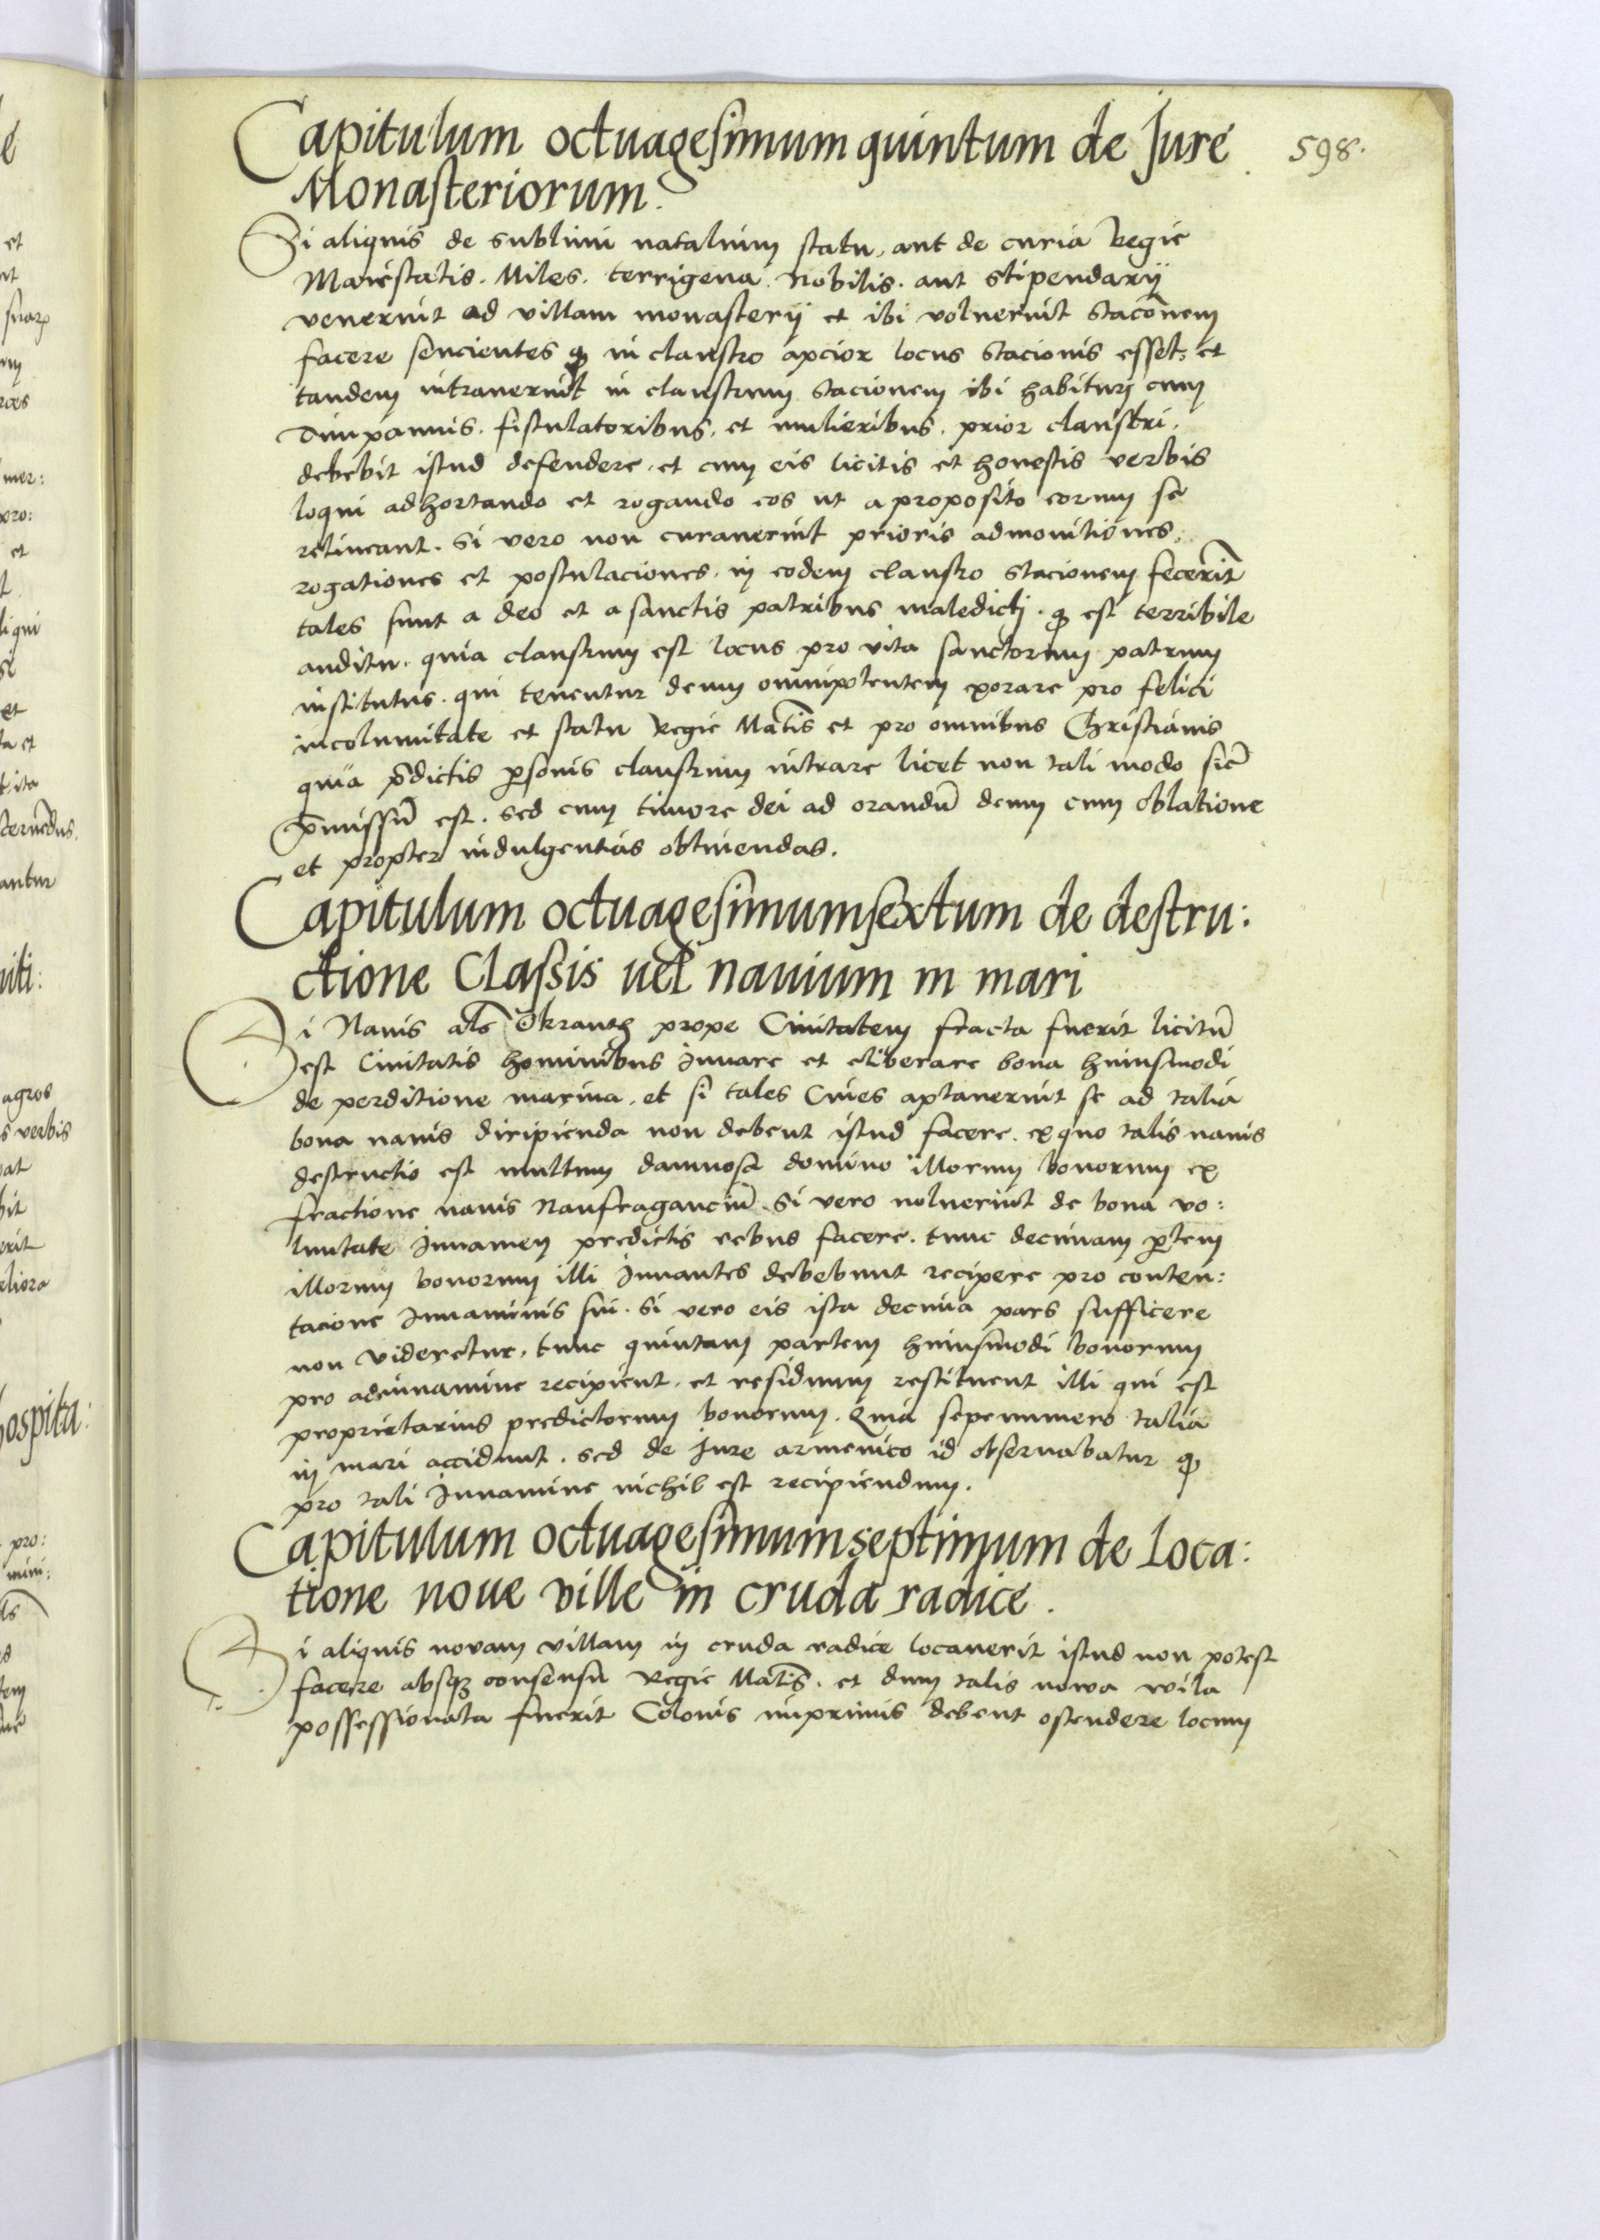 Capitulum octuagesimum quintum de Jure
598.
Monasteriorum.
Si aliquis de sublimi natalium statu, aut de curia Regie
Maiestatis. Miles. terrigena. Nobilis. aut stipendarii
venerint ad villam monasterij et ibi voluerint stacõnem
facere sencientes qꝫ in claustro apcior locus stacionis esset. et
tandem intrauerint in claustrum stacionem ibi habituri cum
Timpannis. fistulatoribus. et mulieribus. prior claustri.
debebit istud defendere. et cum eis licitis et honestis verbis
loqui adhortando et rogando eos ut a proposito eorum se
retineant. Si vero non curauerint prioris admonitiones.
rogationes et postulaciones. in eodem claustro stacionem fecerĩt
tales sunt a deo et a sanctis patribus maledicti. qꝫ est terribile
auditu. quia claustrum est locus pro vita sanctorum patrum
institutus. qui tenentur deum omnipotentem exorare pro felici
incolumitate et statu Regie Mãtis et pro omnibus Christianis
quia p̃dictis ꝑsonis claustrum intrare licet non tali modo sic̃
p̃missũ est. sed cum timore dei ad orandũ deum cum oblatione
et propter indulgentias obtinendas.
Capitulum octuagesimumsextum de destru:
ctione Classis uel nauium in mari
Si Nauis al̃s Okranth prope Ciuitatem fracta fuerit licitũ
est Ciuitatis hominibus Iuuare et eliberare bona huiusmodi
de perditione marina. et si tales Ciues aptauerint se ad talia
bona nauis diripienda non debent istud facere. ex quo talis nauis
destructio est multum damnosa domino illorum bonorum ex
fractione nauis Naufraganciũ. Si vero uoluerint de bona vo:
luntate Iuuamen predictis rebus facere. tunc decimam ꝑtem
illorum bonorum illi Iuuantes debebunt recipere pro conten:
tacione Iuuaminis sui. Si vero eis ista decima pars sufficere
non videretur. tunc quintam partem huiusmodi bonorum
pro adiuuamine recipient. et residuum restituent illi qui est
proprietarius predictorum bonorum. Quia sepenumero talia
in mari accidunt. sed de Iure armenico id obseruabatur qꝫ
pro tali Iuuamine nichil est recipiendum.
Capitulum octuagesimumseptimum de Loca:
tione noue ville in cruda radice.
Si aliquis novam villam in cruda radice locauerit istud non potest
facere absqꝫ consensu Regie Mãtis. et dum talis nowa wila
possessionata fuerit Colonis inprimis debent ostendere locum